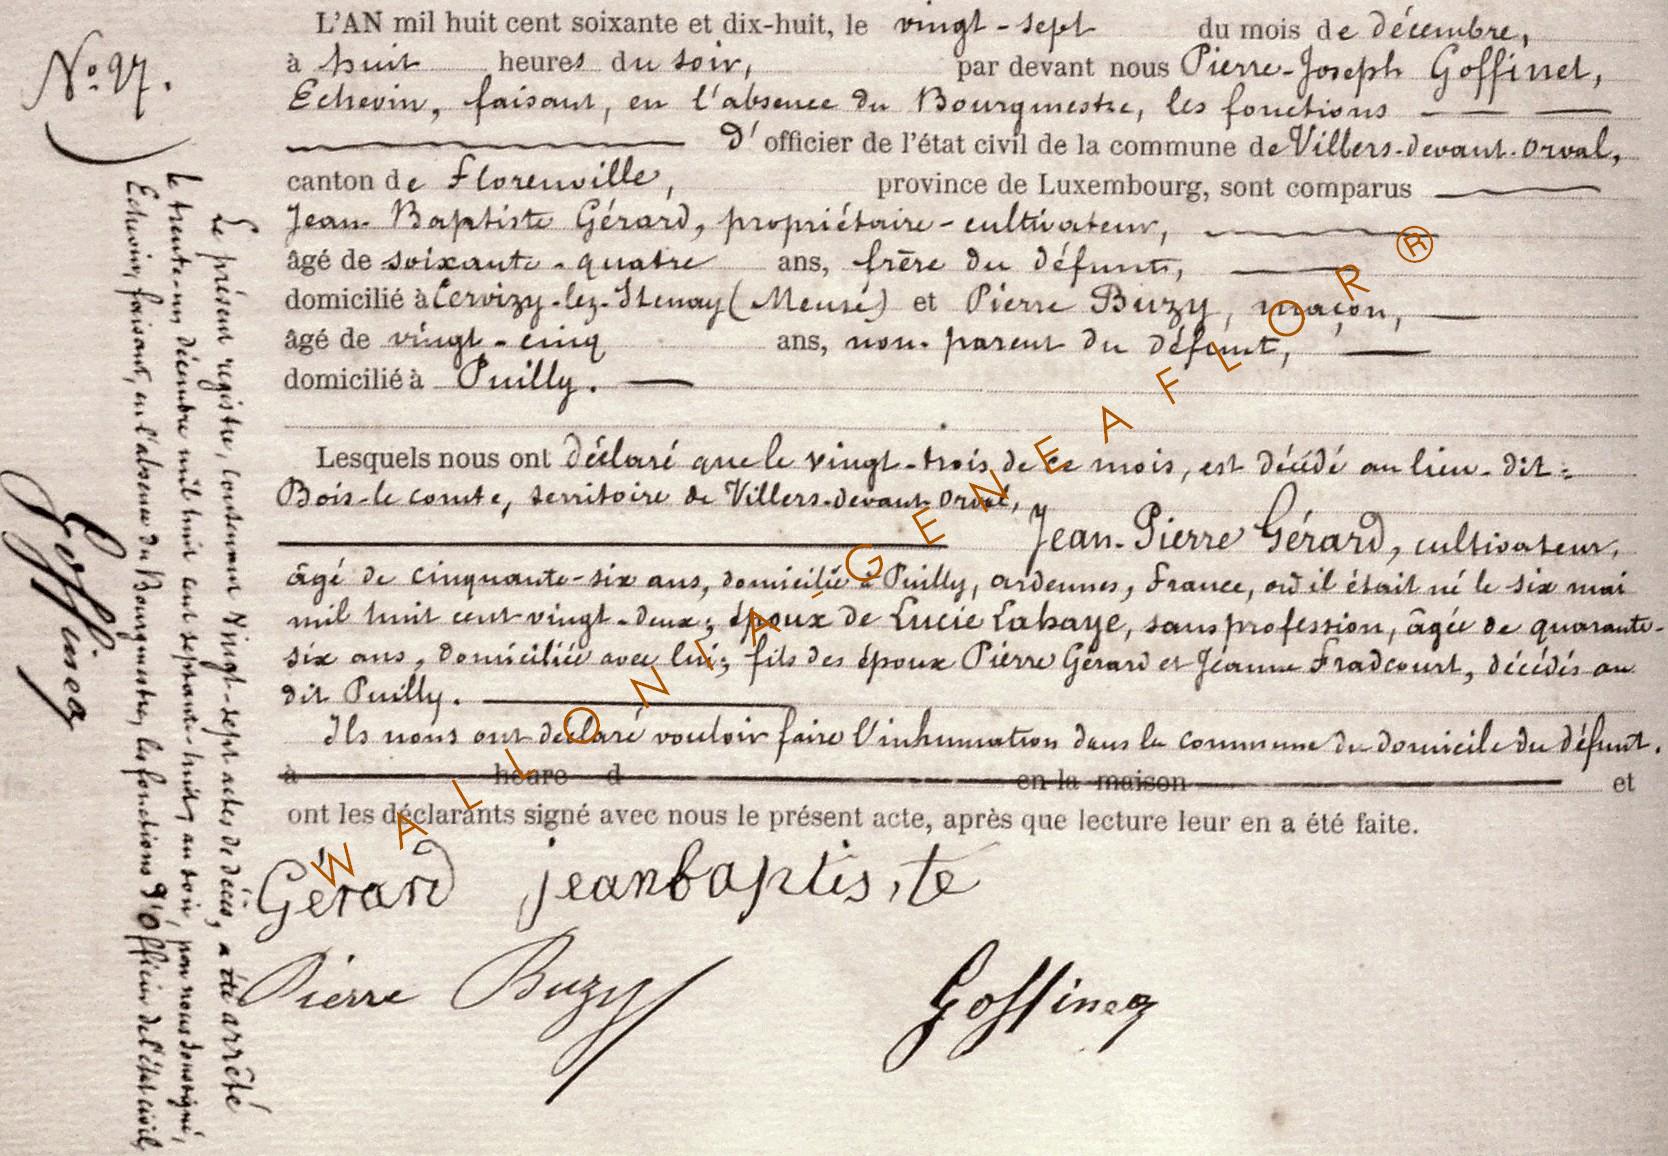 N° 27.
L'AN mil huit cent soixante et dix-huit, le vingt-sept du mois de décembre,
à huit heures du soir, par devant nous Pierre-Joseph Goffinet,
Echevin, faisant, en l'absence du Bourgmestre, les fonctions
d'officier de l'état civil de la commune de Villers-devant-Orval,
canton de Florenville, province de Luxembourg, sont comparus
Jean-Baptiste Gérard, propriétaire-cultivateur,
âgé de soixante-quatre ans, frère du défunt,
domicilié à Cervizy-lez-Stenay (Meuse) et Pierre Buzy, maçon,
âgé de vingt-cinq ans, non-parent du défunt,
domicilié à Puilly.
Lesquels nous ont déclaré que le vingt-trois de ce mois, est décédé au lieu-dit:
Bois-le comte, territoire de Villers-devant-Orval,
Jean-Pierre Gérard, cultivateur,
âgé de cinquante-six ans, domicilié à Puilly, ardennes, France, où il était né le six mai
mil huit cent-vingt-deux; époux de Lucie Lahaye, sans profession, âgée de quarante-
six ans, domiciliée avec lui; fils des époux Pierre Gérard et Jeanne Fradcourt, décédés au
dit Puilly.
Ils nous ont déclaré vouloir faire l'inhumation dans la commune du domicile du défunt.
à heure d en la maison et
ont les déclarants signé avec nous le présent acte, après que lecture leur en a été faite.
Gérard jeanbaptiste
Pierre Buzy
Goffinet
Le présent registre, contenant Vingt-sept actes de décès, a été arrêté
le trente-un décembre mil huit cent septante-huit, au soir, par nous soussigné,
Echevin, faisant, en l'absence du Bourgmestre, les fonctions d'Officier de l'état civil,
Goffinet
WALLONIFA-GENEAFLOR®